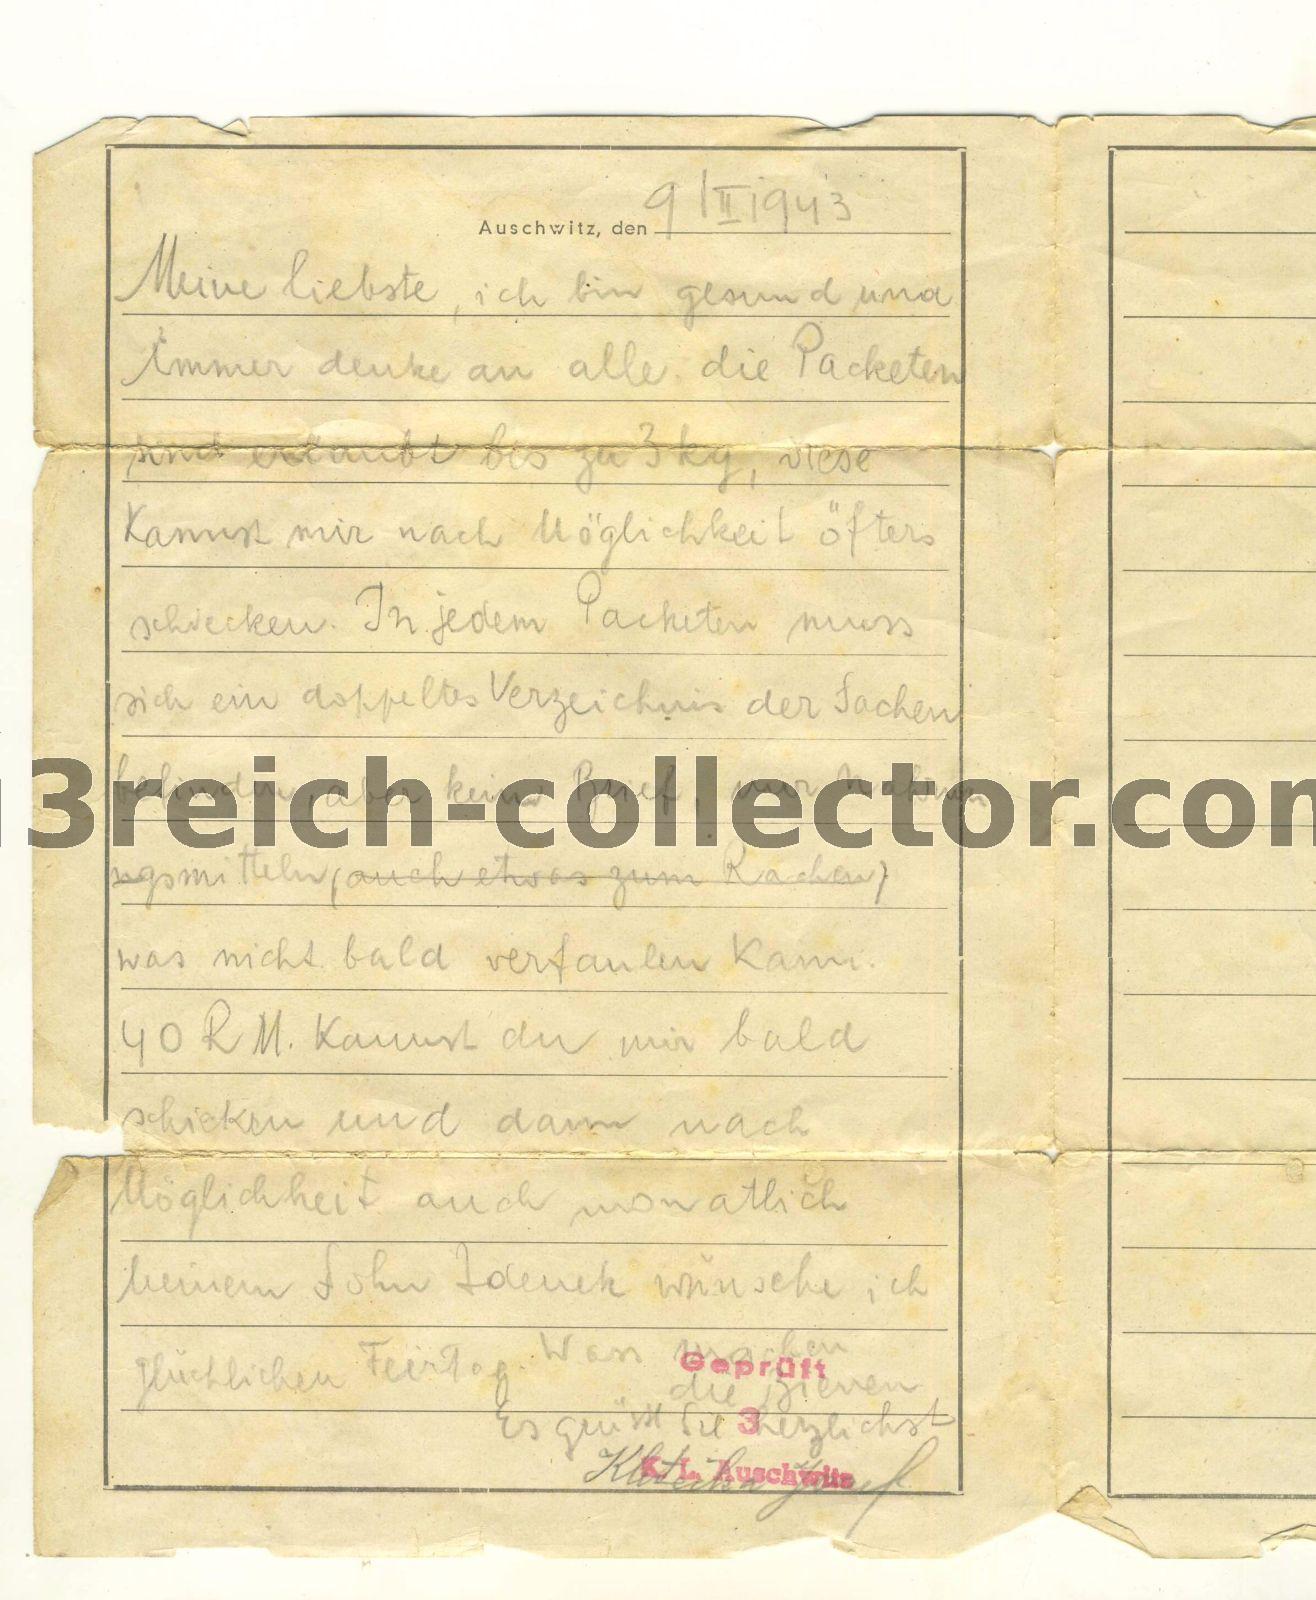 9/II 1943
Auschwitz, den
Meine liebste, ich bin gesund und
immer denke an alle. die Packeten
sind erlaubt bis zu 3 kg, diese
Kannst mir nach Möglichkeit öfters
schiecken. In jedem Packeten muss
sich ein doppeltes Verzeichnis der Sachen
befinden, aber kein Brief, nur Nahrun
3reich-collector.com
ngsmitteln, (auch etwas zum Rachen)
was nicht bald verfaulen Kann.
40 RM. Kannst du mir bald
schicken und dann nach
Möglichkeit auch monatlich
meinem Sohn Zdenek wünsche ich
glücklichen Feirtag. Was machen
Geprüft
die Bienen
Es grüsst Sie herzlichst
3
K. L. Auschwitz
Josef